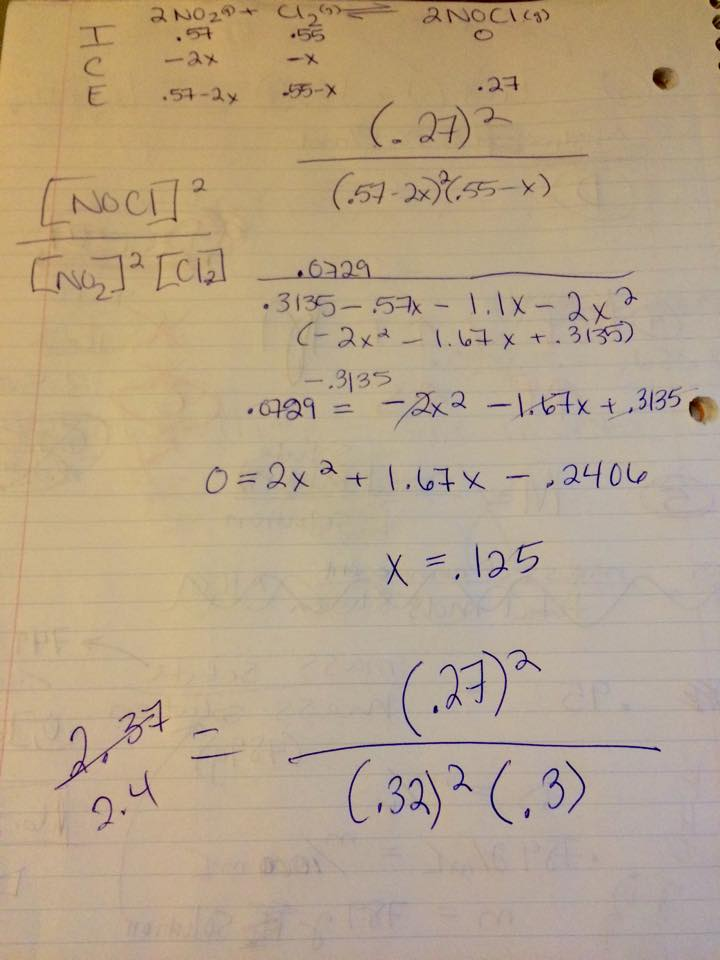 2NO₂(g) + Cl₂(g) ⇌ 2NOCl(g)
I .57 .55 0
C -2x -x
E .57-2x .55-x .27
(.27)²
(.57-2x)²(.55-x)
[NOCl]²
[NO₂]² [Cl₂]
.0729
.3135 - .57x - 1.1x - 2x²
(-2x² - 1.67x + .3135)
-.3135
.0729 = -2x² - 1.67x + .3135
0 = 2x² + 1.67x - .2406
x = .125
2.37 = (.27)²
2.4 (.32)² (.3)